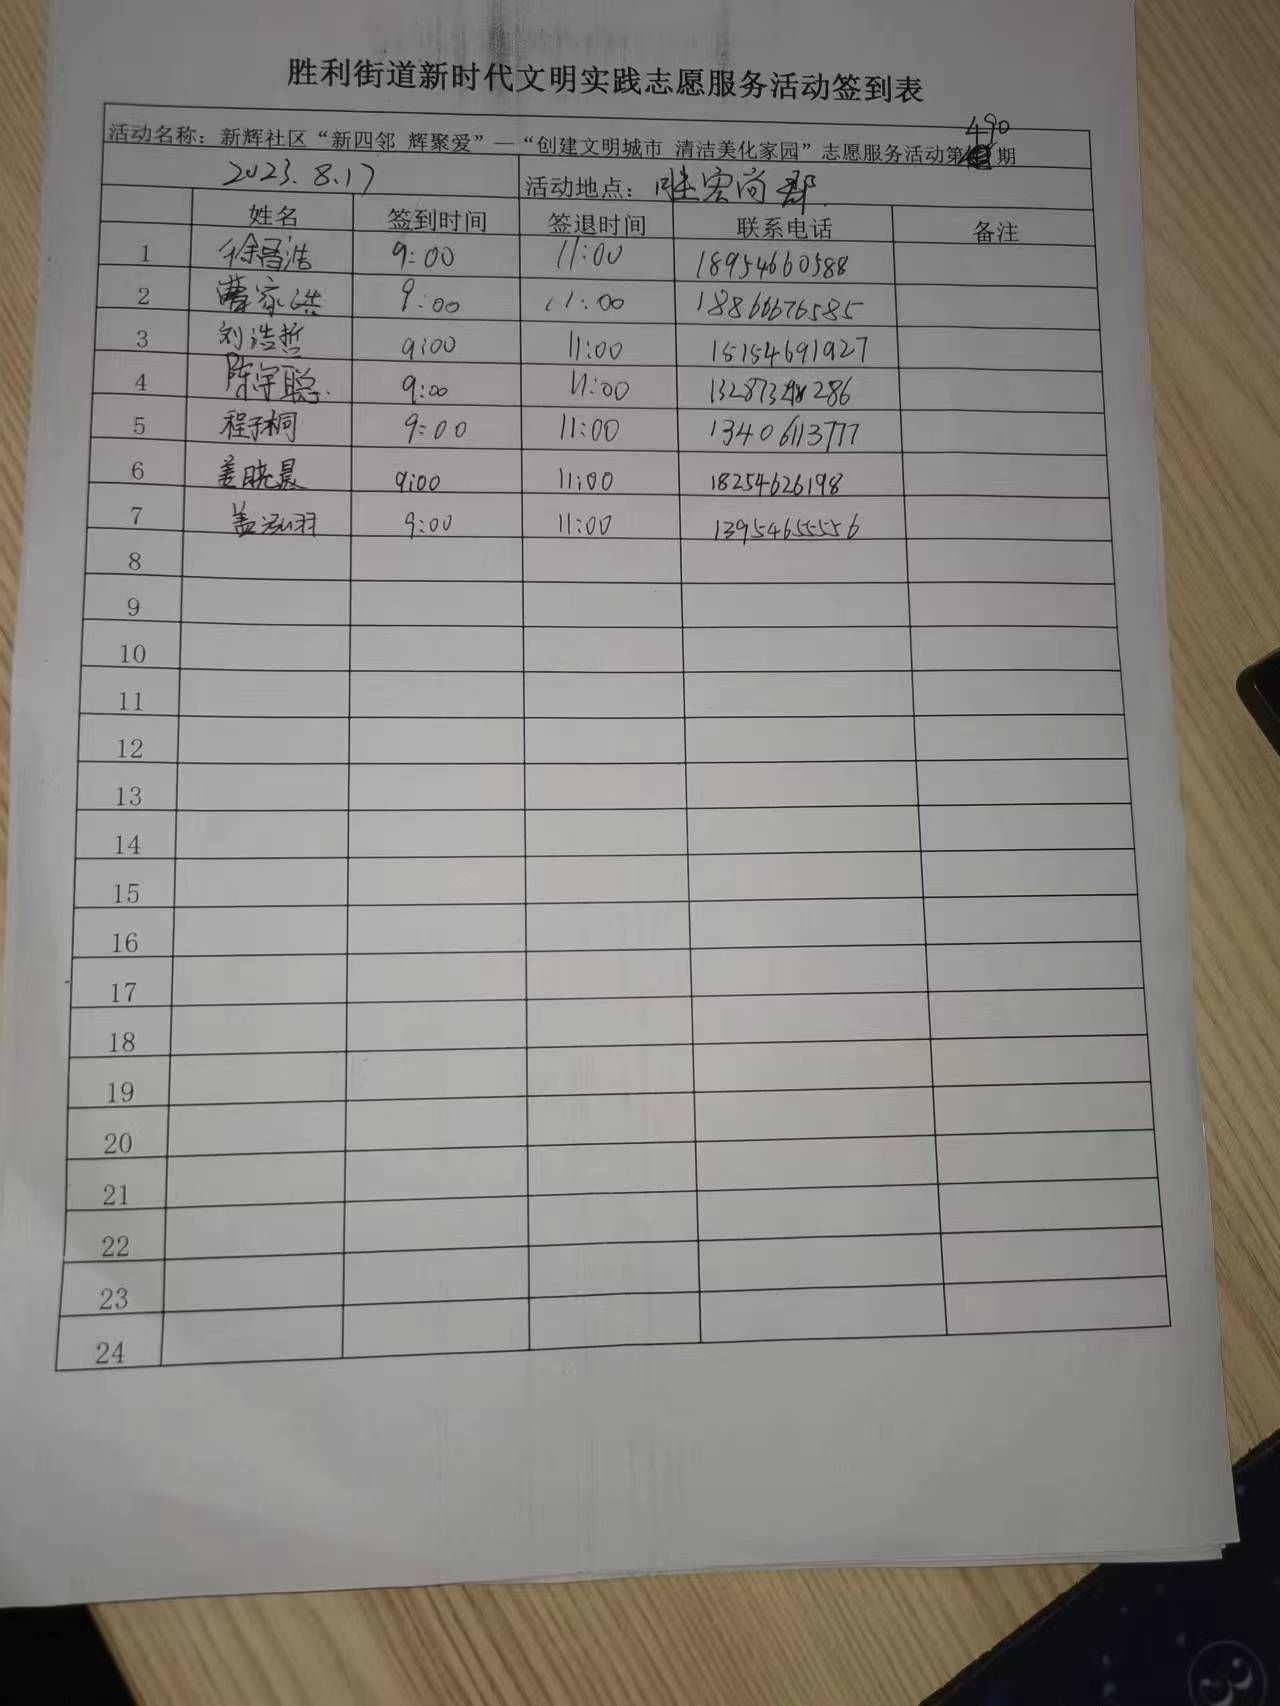 胜利街道新时代文明实践志愿服务活动签到表
活动名称：新辉社区“新四邻 辉聚爱”—“创建文明城市 清洁美化家园”志愿服务活动第490期
2023.8.17 活动地点：胜宏尚郡
姓名 签到时间 签退时间 联系电话 备注
1 徐昌浩 9:00 11:00 18954660588
2 曹家洪 9:00 11:00 18866676585
3 刘浩哲 9:00 11:00 15154691927
4 陈宇聪 9:00 11:00
5 程子桐 9:00 11:00 13406113777
6 姜晓晨 9:00 11:00 18254626198
7 盖泓羽 9:00 11:00 13954655556
8
9
10
11
12
13
14
15
16
17
18
19
20
21
22
23
24